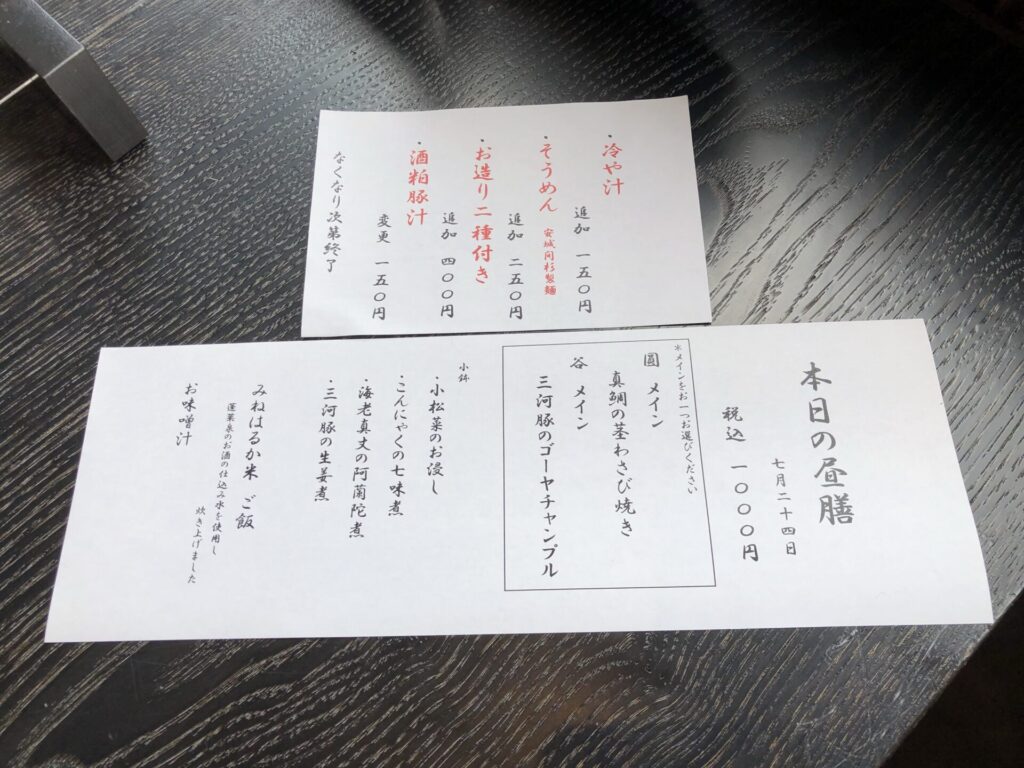 ・冷や汁
追加 一五〇円
・そうめん 安城 丙杉製麺
追加 二五〇円
・お造り二種付き
追加 四〇〇円
・酒粕豚汁
変更 一五〇円
なくなり次第終了
本日の昼膳
七月二十四日
税込 一〇〇〇円
※メインをお一つお選びください
圓 メイン
真鯛の茎わさび焼き
谷 メイン
三河豚のゴーヤチャンプル
小鉢
・小松菜のお浸し
・こんにゃくの七味煮
・海老真丈の阿蘭陀煮
・三河豚の生姜煮
みねはるか米 ご飯
蓬莱泉のお酒の仕込み水を使用し
炊き上げました
お味噌汁